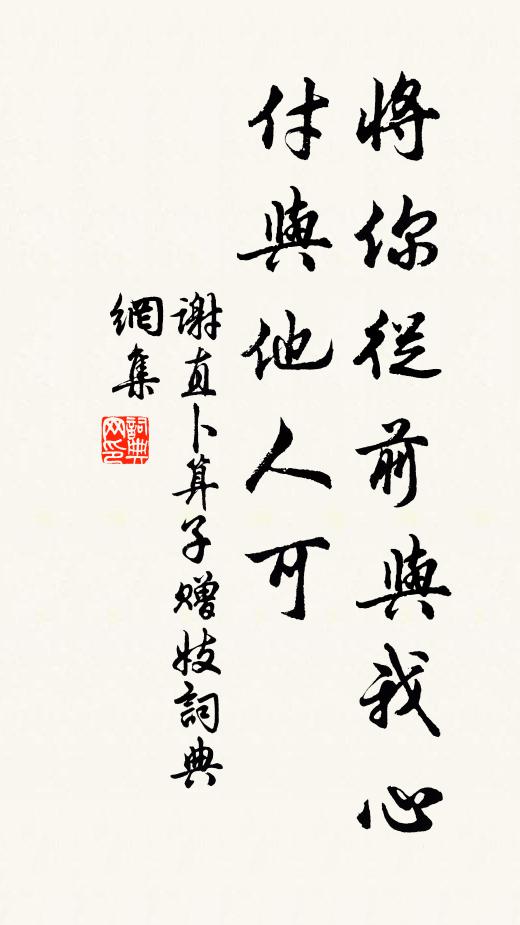 將你從前與我心
付與他人可
谢直卜算子赠妓詞典
網集
詞典
网印